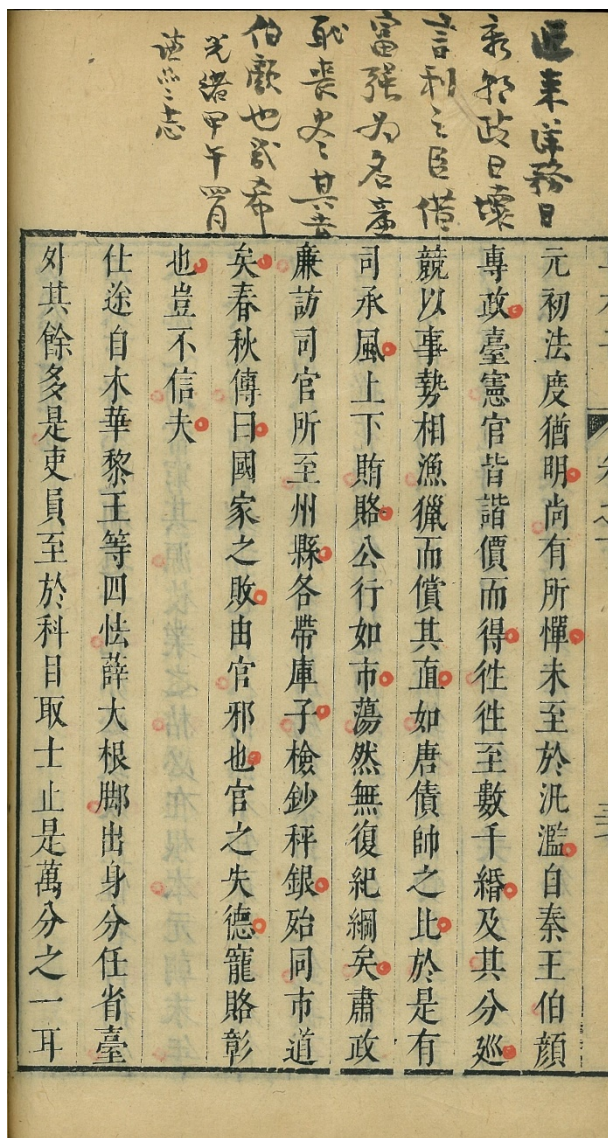 近来洋務日
新朝政日壞
言利之臣借
富强为名廉
耻丧尽其去
伯顏也幾希
光緒甲午四月
志
元初法度猶明尚有所憚未至於汎濫自秦王伯顏
專政臺憲官皆諧價而得徃徃至數千緡及其分廵
競以事勢相漁獵而償其直如唐債帥之比於是有
司承風上下賄賂公行如市蕩然無復紀綱矣肅政
廉訪司官所至州縣各帶庫子檢鈔秤銀殆同市道
矣春秋傳曰國家之敗由官邪也官之失德寵賂彰
也豈不信夫
仕途自木華黎王等四怯薛大根脚出身分任省臺
外其餘多是吏員至於科目取士止是萬分之一耳